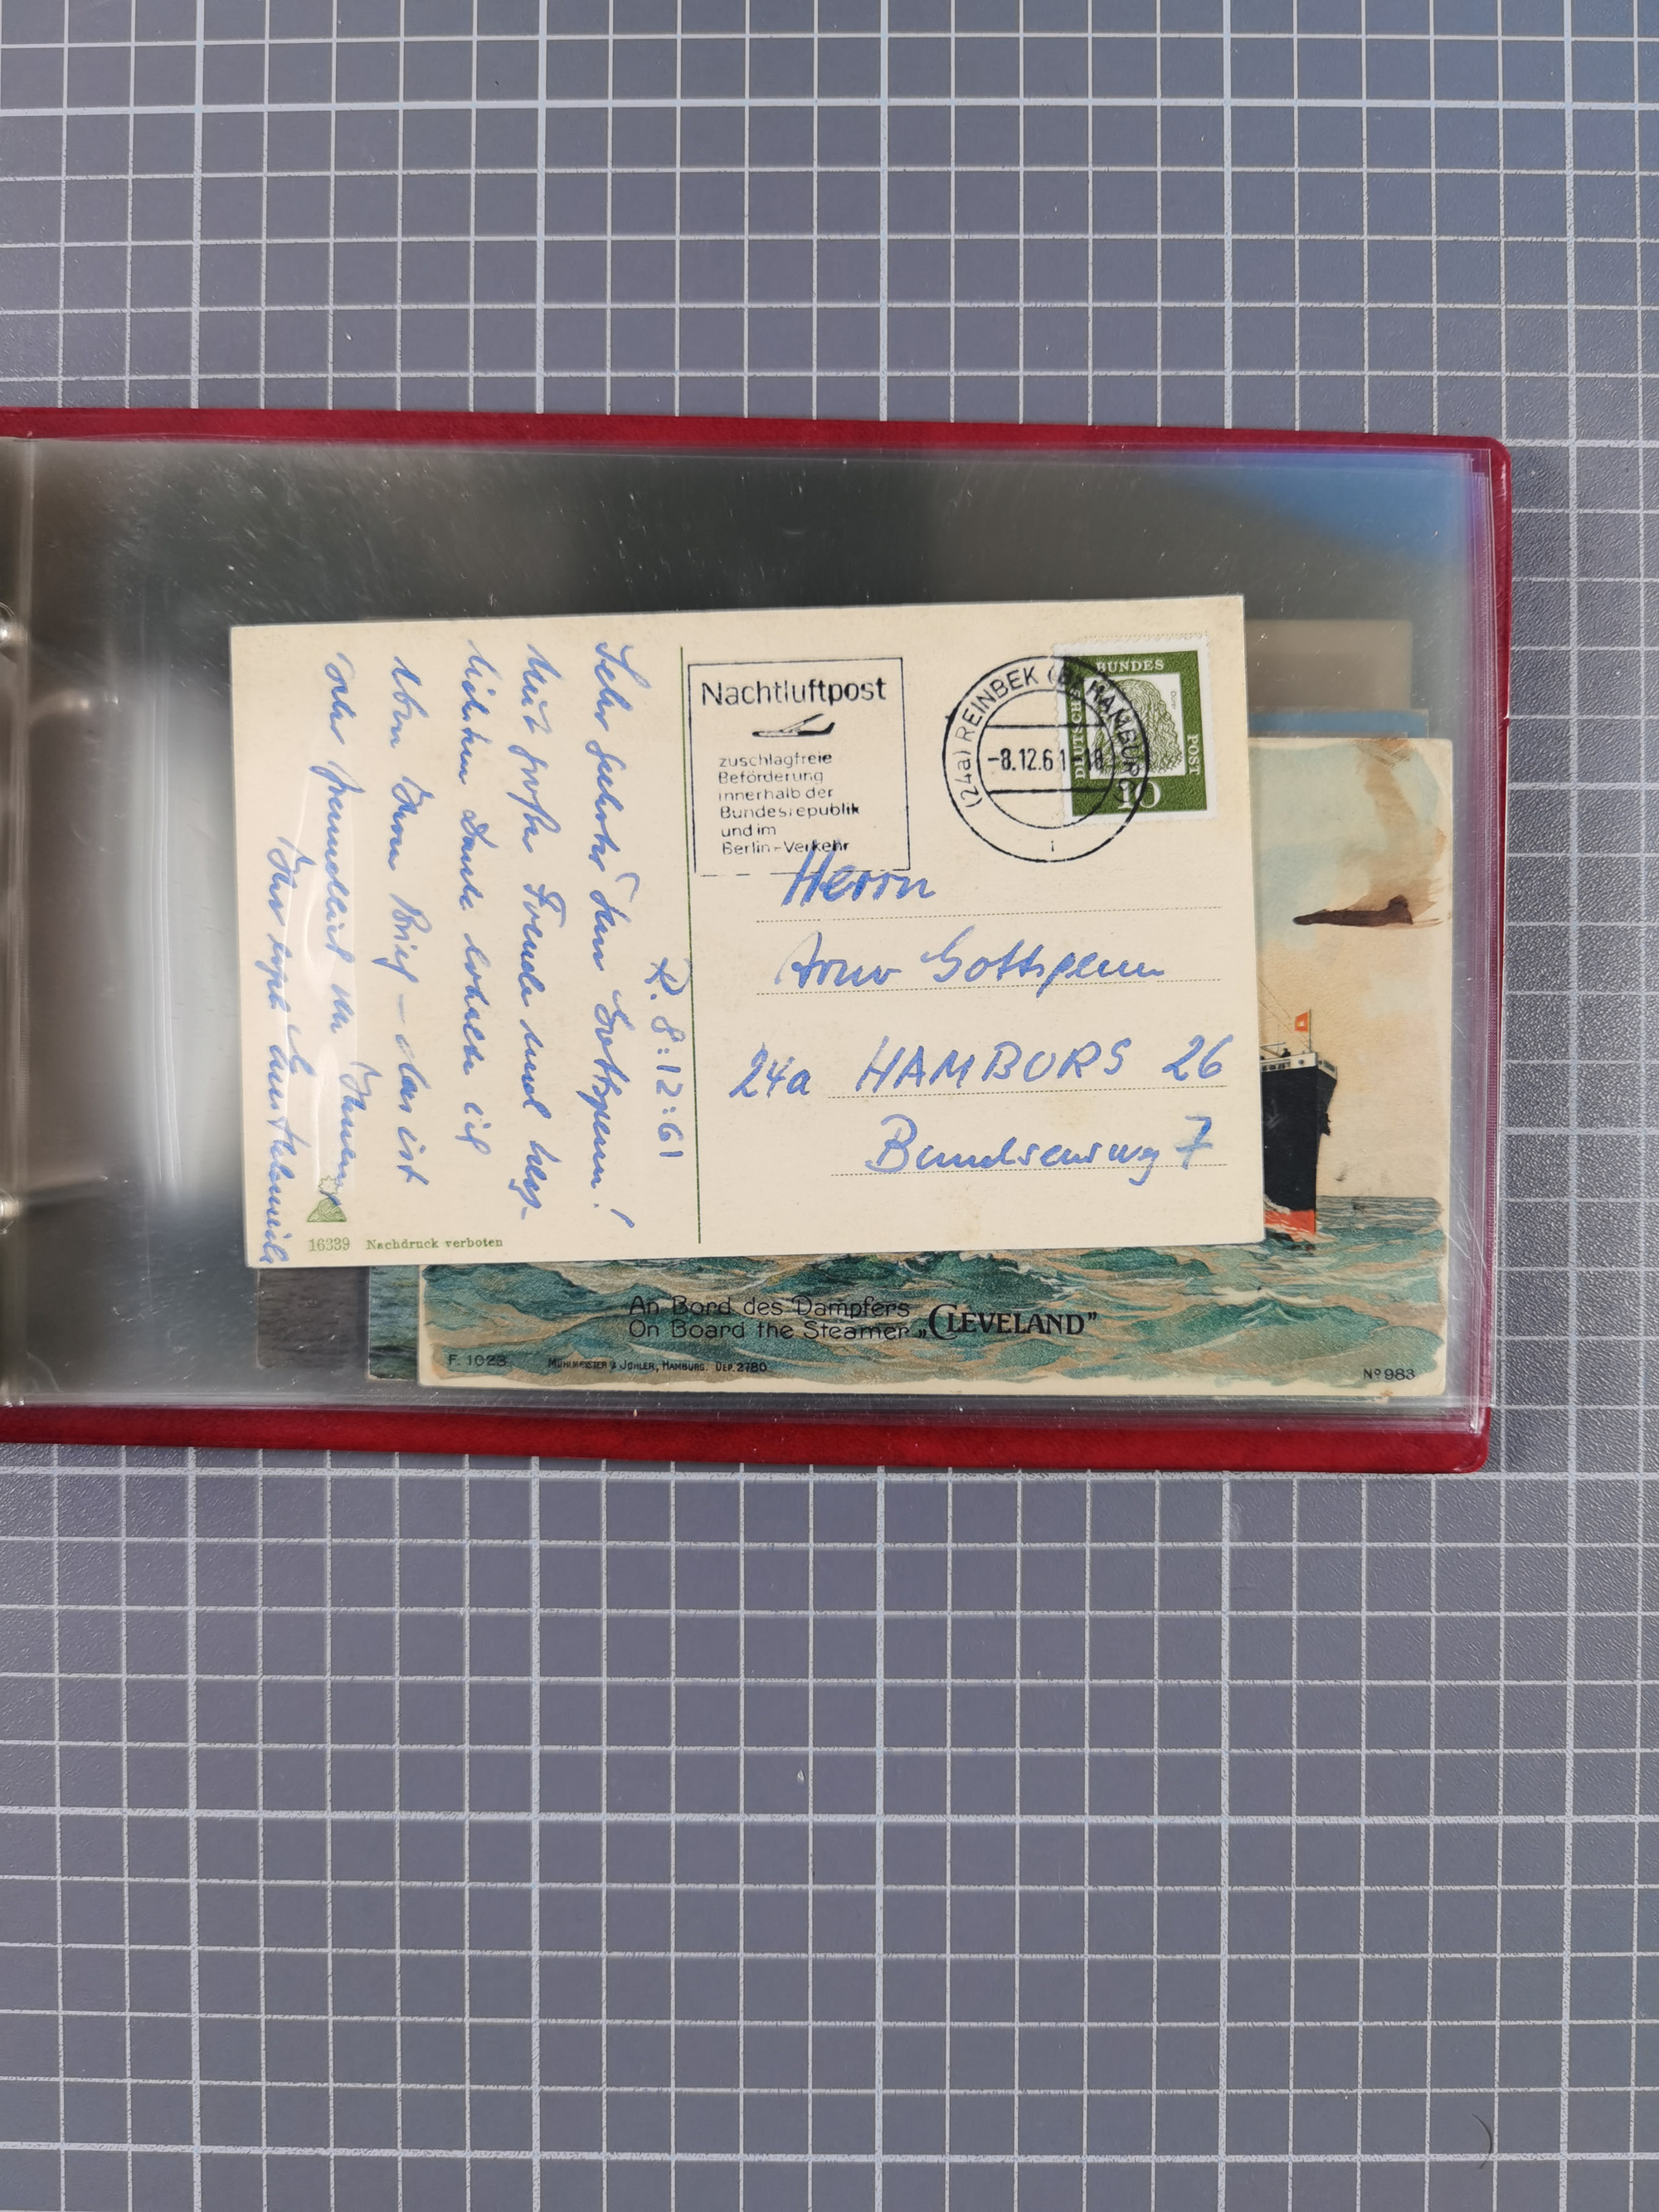 Nachtluftpost
zuschlagfreie
Beförderung
innerhalb der
Bundesrepublik
und im
Berlin-Verkehr
(24a) REINBEK (BZ HAMBURG)
-8.12.61-18
i
DEUTSCHE
BUNDES
POST
10
Herrn
Arno Gottspenn
24a HAMBURG 26
Bundsensweg 7
R. 8:12:61
Sehr geehrter Herr Gottspenn!
Mit großer Freude und herz-
lichem Dank erhielt ich
eben Ihren Brief – das ist
sehr freundlich von Ihnen
Ihr
16339 Nachdruck verboten
An Bord des Dampfers
On Board the Steamer „CLEVELAND”
F. 1023
MÜHLMEISTER & JOHLER, HAMBURG. DEP. 2780
No 983